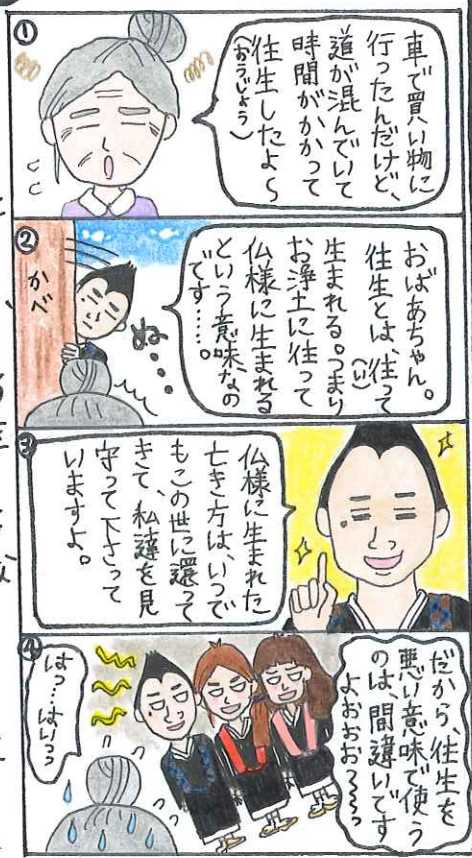 ①
車で買い物に
行ったんだけど、
道が混んでいて
時間がかかって
往生したよ～
(おうじょう)
②
おばあちゃん。
往生とは、往って
(い)
生まれる。つまり
お浄土に往って
仏様に生まれる
という意味なの
です……。
ぬ・・・
かべ
③
仏様に生まれた
亡き方は、いつで
もこの世に還って
きて、私達を見
守って下さって
いますよ。
④
だから、往生を
悪い意味で使う
のは、間違いです
よおおお～～っ
はっ…はいっっ